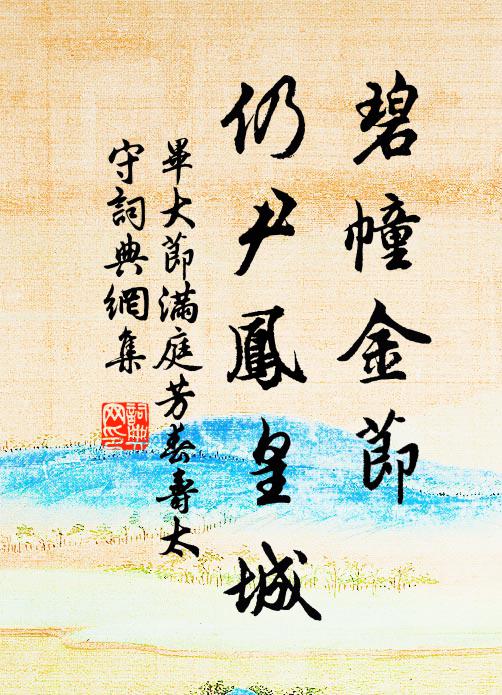 碧幢金節
仍尹鳳皇城
畢大節滿庭芳壽太
守詞典網集
詞典网印